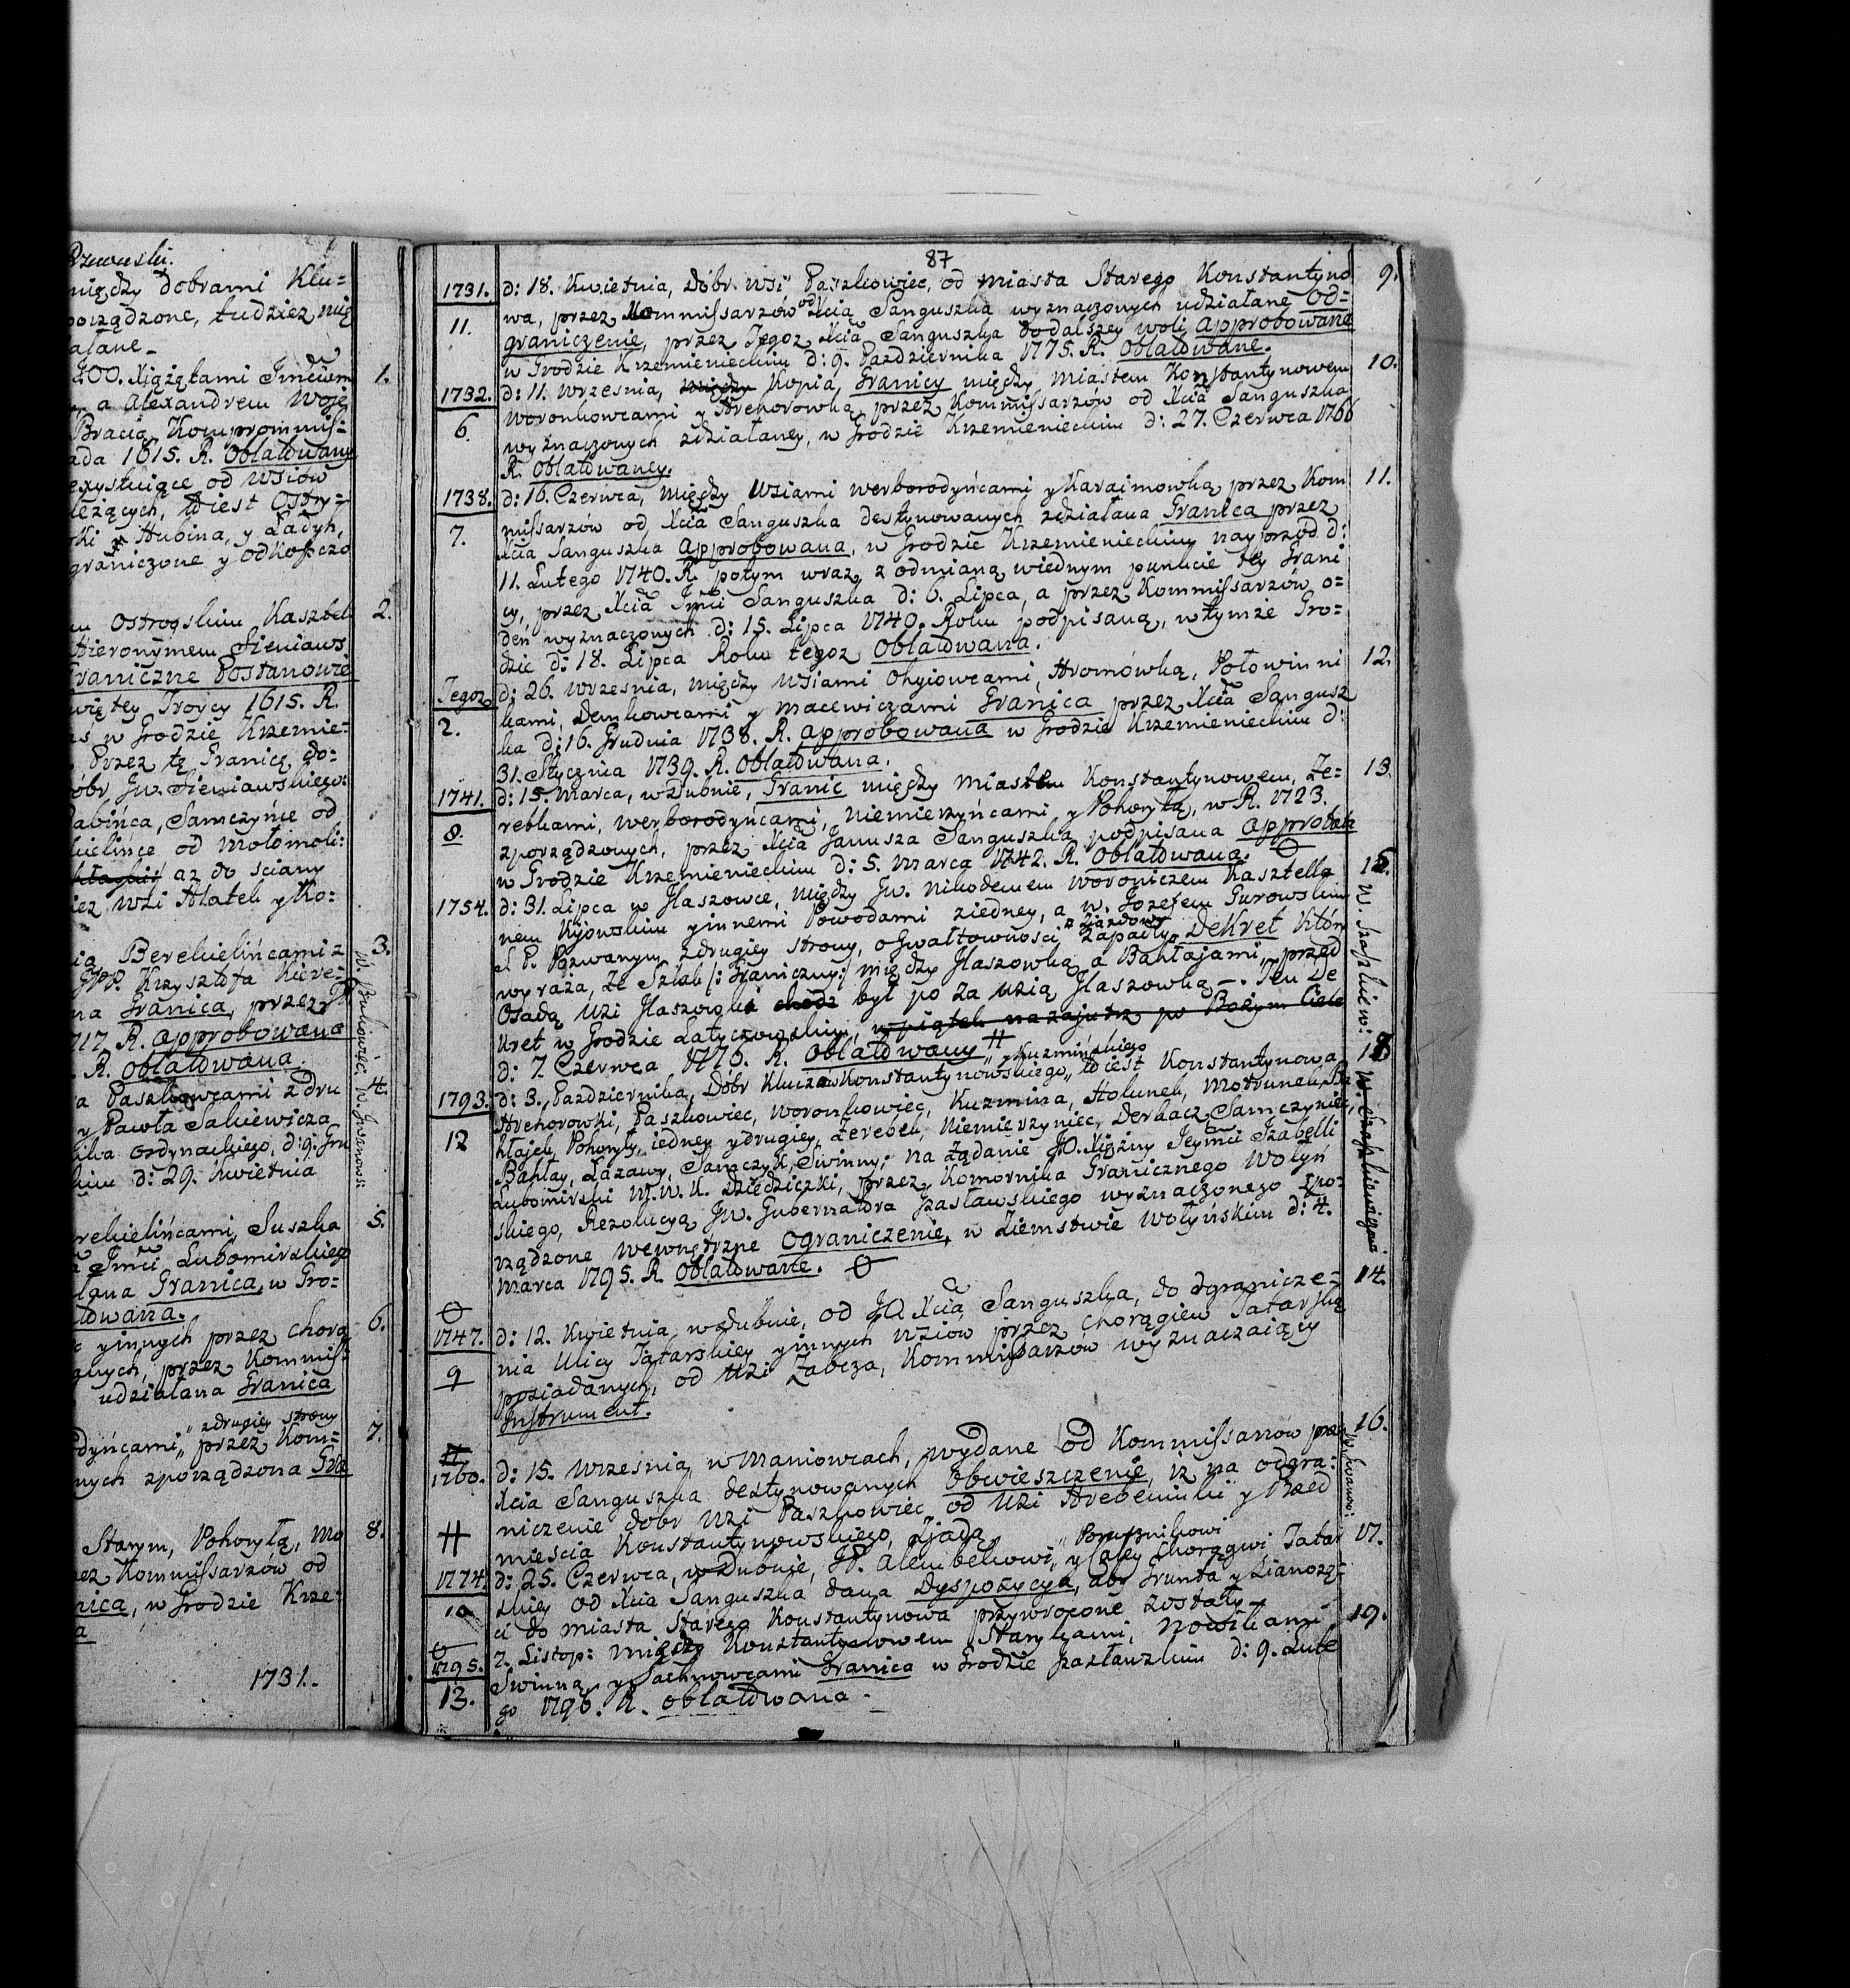 Rzewuski.
między dobrami Klu=
porządzone, tudzież mię
ałane_
JOO. Xiążętami Jmciom 1.
a Alexandrem Woje
Bracią, Kompromiss=
ada 1615. R. Oblatowany
exystuiące od Wsiów
leżących, to iest Ostry=
ski Hubina, y Ladyh,
graniczone y odkopczo
Ostrogskim Kasztel 2.
Hieronymem Sieniaws
Graniczne Postanowie
więtey Troycy 1615. R.
w Grodzie Krzemie=
Przez tę Granicę, do=
óbr Jw. Sieniawskiego:
abińca, Samczyńce od
kielińce od Mołomoli:
aż do ściany
wsi Hłatek y Ko=
Berekielińcami z 3.
JPP. Krzysztofa Kiere=
na Granica, przez
717. R. approbowana
R. oblatowana.
a Paszkowcami z dru 4.
y Pawła Sakiewicza
ordynackiego, d: 9. Gru
d: 29. Kwietnia
rekielińcami, Suszka 5.
Jmci Lubomirskiego
łana Granica, w Gro=
atowana.
y innych przez chorą 6.
gnych, przez Kommiss:
udziałana Granica
z drugiey strony
dyńcami, przez Kom= 7.
nych zporządzona Gra
Starym, Pohoryłą, Mo 8.
zez Kommissarzów od
nica, w Grodzie Krze=
a
1731.
87
1731. d: 18. Kwietnia, Dóbr wsi Paszkowiec, od miasta Starego Konstantyno 9.
wa, przez Kommissarzów od Xcia Sanguszka wyznaczonych udziałane od=
11. graniczenie, przez Tegoż Xcia Sanguszka do dalszey woli approbowane
w Grodzie Krzemienieckim d: 9. Października 1775. R. Oblatowane.
1732. d: 11. Września, między Kopia, Granicy między miastem Konstantynowem 10.
Woronkowcami y Hrehorowką przez Kommissarzów od Xcia Sanguszka
6. wyznaczonych zdziałaney, w Grodzie Krzemienieckim d: 27. Czerwca 1766
R. Oblatowaney.
1738. d: 16. Czerwca, między Wsiami Werborodyńcami y Karaimowką przez Kom 11.
missarzów od Xcia Sanguszka destynowanych zdziałana Granica przez
7. Xcia Sanguszka approbowana, w Grodzie Krzemienieckim nayprzod d:
11. Lutego 1740. R. potym wraz z odmianą w iednym punkcie tey Grani
cy, przez Xcia Jmci Sanguszka d: 6. Lipca, a przez Kommissarzów o=
deń wyznaczonych d: 15. Lipca 1740. Roku podpisaną, w tymże Gro=
dzie d: 18. Lipca Roku tegoż Oblatowana.
Tegoż d: 26. Września, między Wsiami Ohyiowcami, Hromówką, Połowinni 12.
kami, Demkowcami y Macewiczami Granica przez Xcia Sangusz
2. ka d: 16. Grudnia 1738. R. approbowana w Grodzie Krzemienieckim d:
31. Stycznia 1739. R. Oblatowana.
1741. d: 15. Marca, w Dubnie, Granic między Miastem Konstantynowem, Że= 13.
rebkami, Werborodyńcami, Niemierzyńcami y Pohoryłą, w R. 1723.
8. zporządzonych, przez Xcia Janusza Sanguszka podpisana approbata
w Grodzie Krzemienieckim d: 5. Marca 1742. R. Oblatowana.
1754. d: 31. Lipca w Hłaszowce, między Jw. Nikodemem Woroniczem Kasztella 15.
nem Kijowskim y innemi Powodami z iedney, a W. Jozefem Gurowskim
S P. Pozwanym z drugiey strony, o Gwałtowności Ziazdowy zapadły Dekret Który
wyraża, że Szlab /: Graniczny:/ między Hłaszowką a Bahłajami, przed
Osadą Wsi Hłaszowki choć był po za Wsią Hłaszowką_. Ten De
kret w Grodzie Latyczowskim, w piątek nazajutrz po Bożym Ciele
d: 7. Czerwca 1776. R. Oblatowany
y Kuzmińskiego
1793. d: 3. Października, Dobr Klucza Konstantynowskiego to iest Konstantynowa 18
Hrehorowki, Paszkowiec, Woronkowiec, Kuzmina, Hołunek, Motrunek, Ba
12 hłajek, Pohoryły, iedney y drugiey, Żerebek, Niemierzyniec, Derkacz, Samczyniec,
Bahłay, Łazawy, Samczyk, Swinny, na Żądanie JO. Xiężny Jeymci Izabelli
Lubomirski W. W. K. dziedziczki, przez Komornika Granicznego Wołyń
skiego, Rezolucyą Jw. Gubernatora Zasławskiego wyznaczonego Spo=
rządzone wewnętrzne Ograniczenie, w Ziemstwie Wołyńskim d: 4.
Marca 1795. R. Oblatowane.
1747. d: 12. Kwietnia w Dubnie, od JO. Xcia Sanguszka, do ogranicze= 14.
nia Ulicy Tatarskiey y innych Wsiów przez chorągiew Tatarską
9 posiadanych, od Wsi Zabcza, Kommissarzów wyznaczaiący
Instrument.
1760. d: 15. Września, w Maniowcach, wydane od Kommissarzów przez 16.
Xcia Sanguszka destynowanych Obwieszczenie, iż na odgra=
niczenie dobr Wsi Paszkowiec od Wsi Hrebeninki y Przed
mieścia Konstantynowskiego, Zjadą.
Porucznikowi
1774. d: 25. Czerwca, w Dubnie, JP. Alembekowi, y całey Chorągwi Tatar 17.
skiey od Xcia Sanguszka dana Dyspozycya, aby Grunta y Sianozę=
10 ci do miasta Starego Konstantynowa przywrocone zostały_
1795. 7. Listop: między Konstantynowem Starykami, Nowikami 19.
Swinną, y Sachnowcami Granica w Grodzie Zasławskim d: 9. Lute
13. go 1796. R. oblatowana.